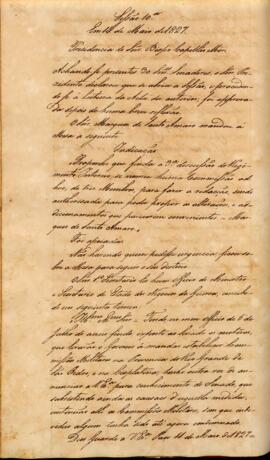 Sessão 10.ª
Em 14 de Maio de 1827.
Presidencia do Snr. Bispo Capellão Mór.
Achando-se presentes 30 Snrs. Senadores, o Snr. Pre-
sidente declarou que se abria a Sessão, e proceden-
do-se á Leitura da Acta da anterior, foi approva-
da depois de huma breve reflexão.
O Snr. Marquez de Santo Amaro mandou á
Mesa a seguinte
Indicação
Proponho que finda a 3.ª discussão do Regi-
mento Interno, se nomeie huma Commissão ad
hoc, de tres Membros, para fazer a redacção, sendo
authorisada para poder propôr as alterações, e ad-
dicionamentos que parecerem convenientes = Mar-
quez de Santo Amaro.
Foi apoiada.
Não havendo quem pedisse urgencia, ficou so-
bre a Mesa para seguir o seu destino.
O Snr. 1.º Secretario leo hum Officio do Ministro
e Secretario de Estado dos Negocios da Guerra, concebi-
do nos seguintes termos
Senr. = Tendo no meu officio de 8 de
Julho do anno findo, exposto as
que levarão o Governo á mandar estabelecer huma
missão Militar na Provincia do Rio Grande de
São Pedro, e na Cisplatina; tenho outra vez de an-
nunciar a V. Ex.ª para conhecimento do Senado, que
subsistindo ainda as causas d'aquella medida,
continuão alli as Commissões Militares, sem que
algum tenha sido até agora
Deos Guarde a V. Ex.ª Paço 11 de Maio de 1827 =